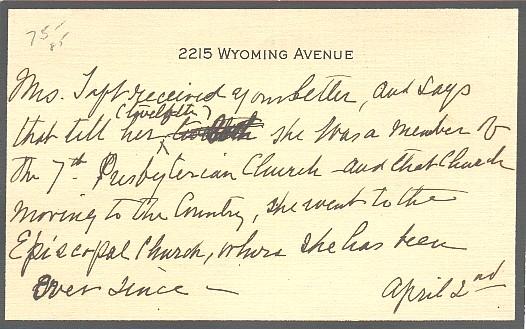 75
85
2215 WYOMING AVENUE
Mrs. Taft received your letter, and says
(twelfth)
that till her she was a member of
the 7th Presbyterian Church - and that Church
moving to the Country, she went to the
Episcopal Church, where she has been
ever since —
April 2nd